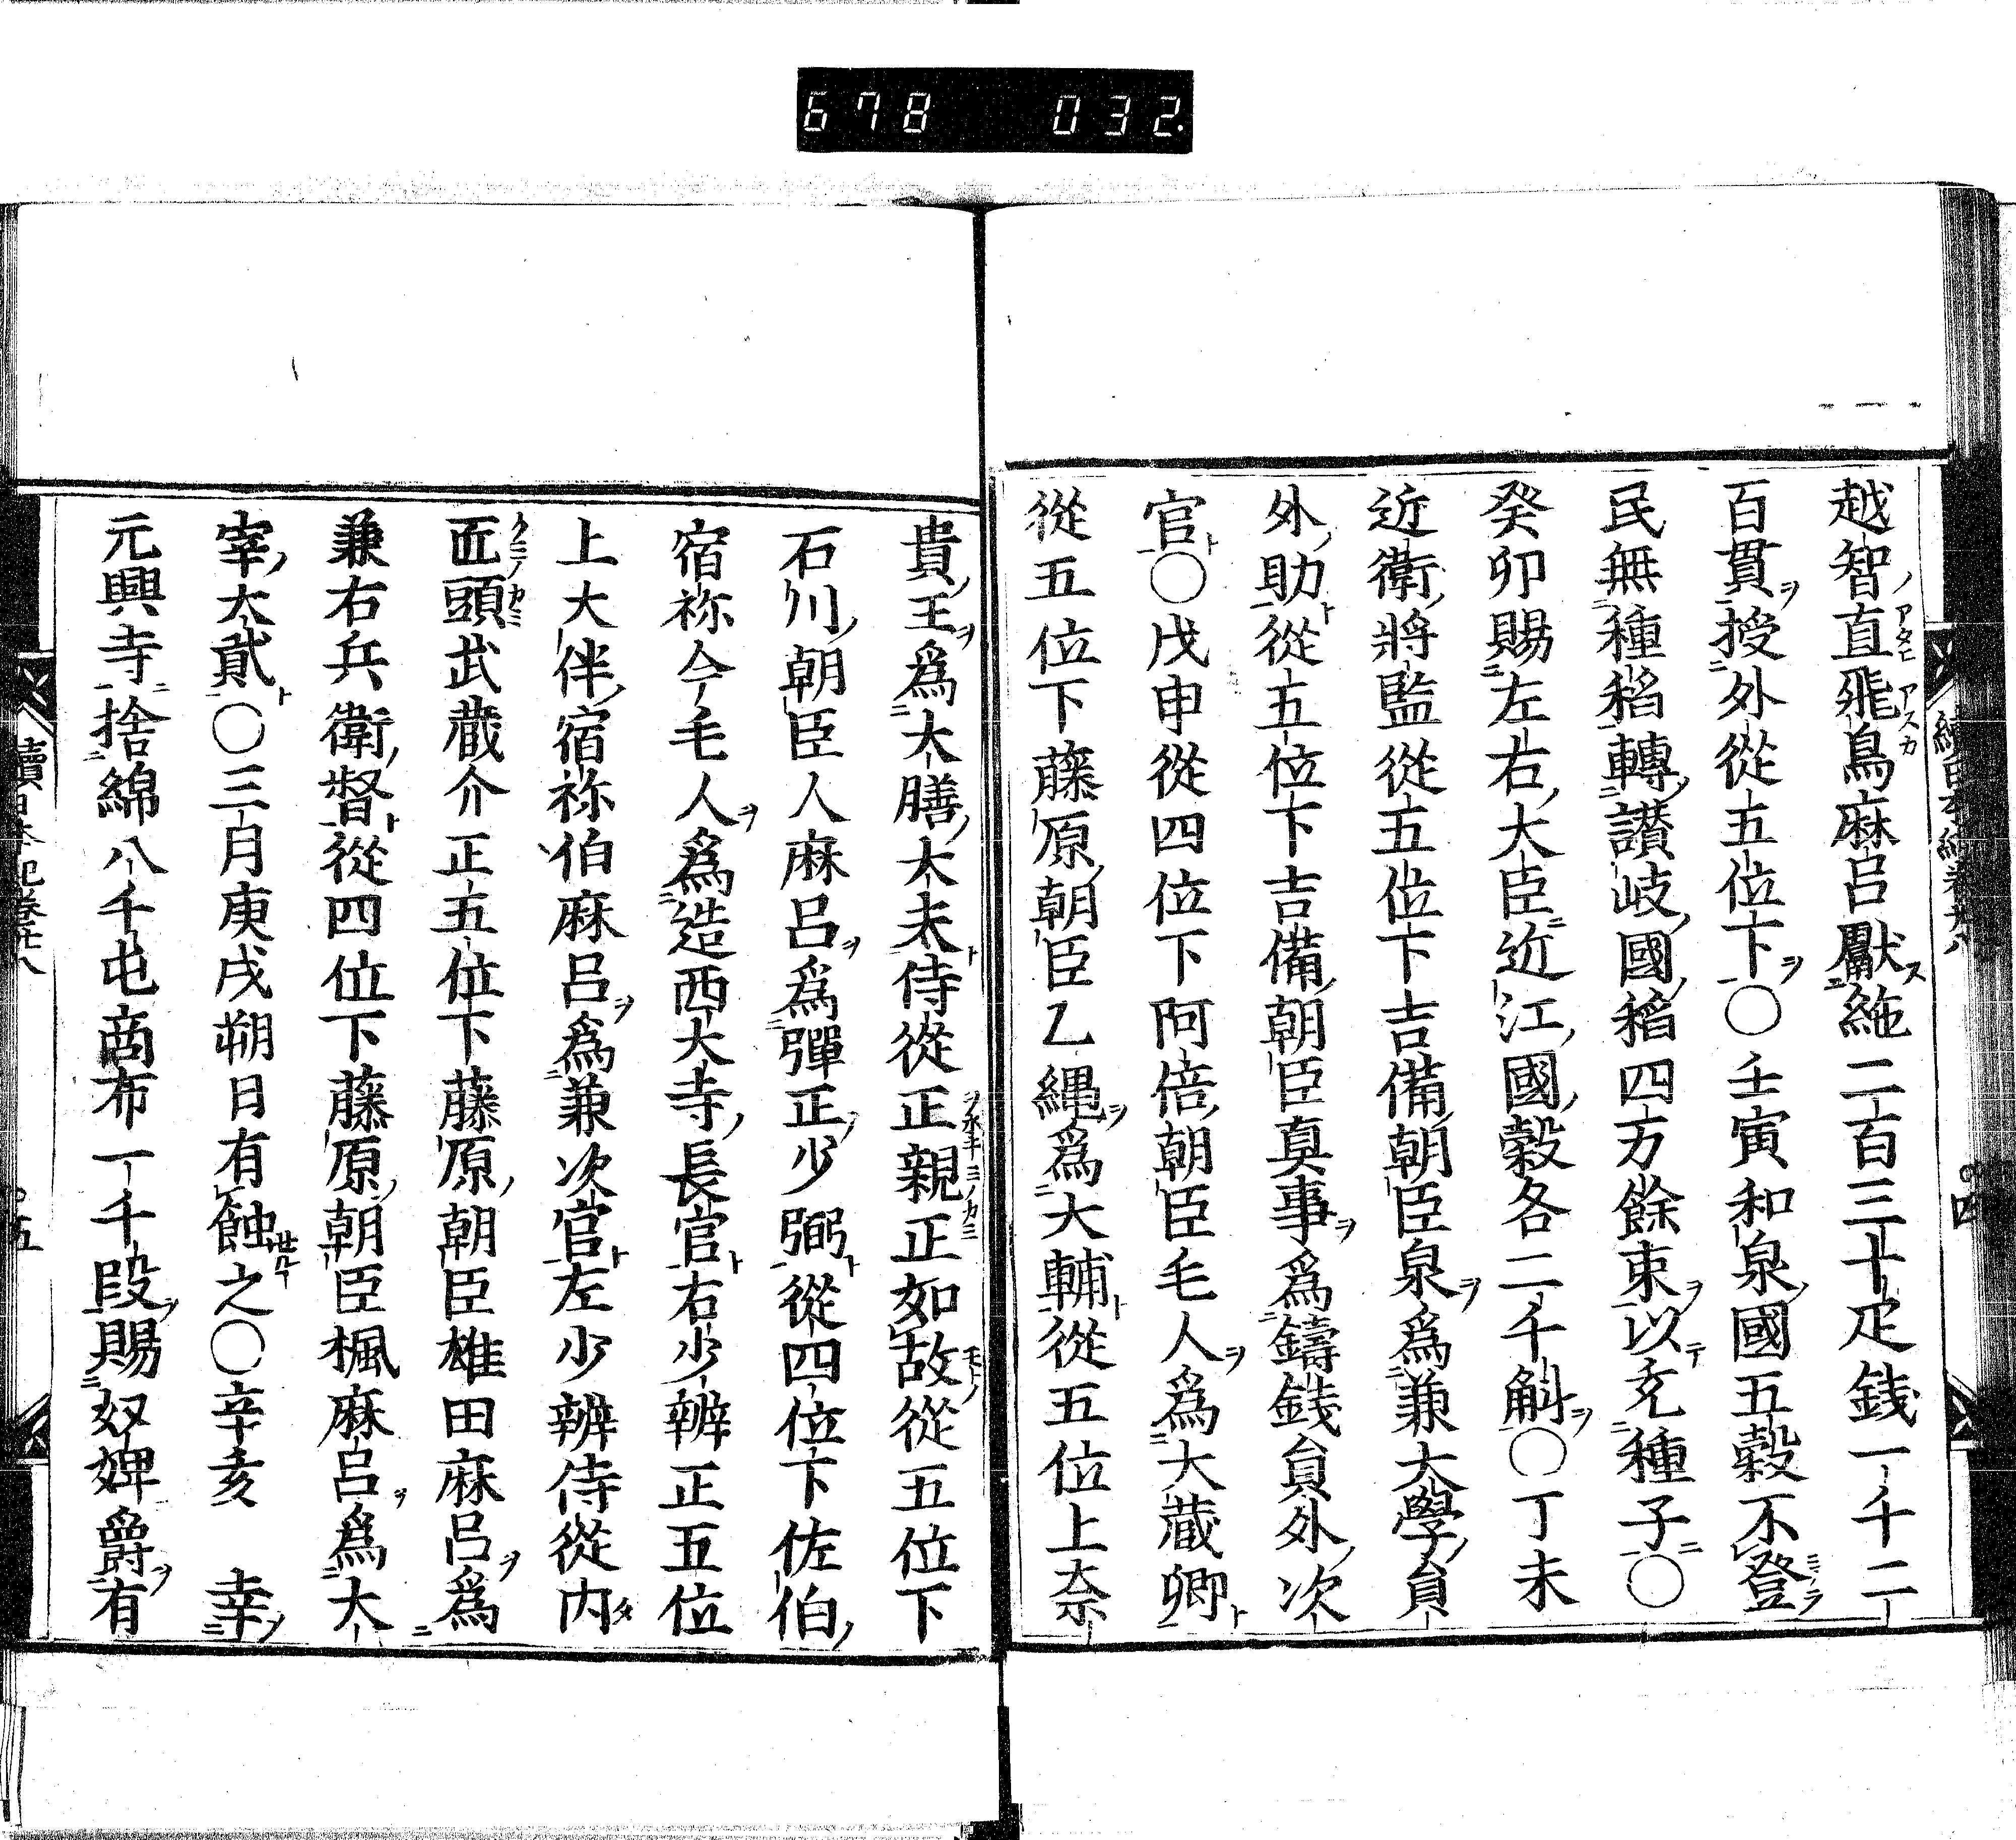 678 032
越智直飛鳥麻呂獻絁二百三十疋銭一千二
百貫授外從五位下〇壬寅和泉國五穀不登
民無種稻轉讃岐國稻四万餘束以充種子〇
癸卯賜左右大臣近江國穀各二千斛〇丁未
近衛將監從五位下吉備朝臣泉爲兼大學員
外助從五位下吉備朝臣真事爲鑄銭員外次
官〇戊申從四位下阿倍朝臣毛人爲大蔵卿
從五位下藤原朝臣乙縄爲大輔從五位上奈
貴王爲大膳大夫侍從正親正如故從五位下
石川朝臣人麻呂爲彈正少弼從四位下佐伯
宿祢今毛人爲造西大寺長官右少辨正五位
上大伴宿祢伯麻呂爲兼次官左少辨侍從内
匠頭武蔵介正五位下藤原朝臣雄田麻呂爲
兼右兵衛督從四位下藤原朝臣楓麻呂爲大
宰大貳〇三月庚戌朔日有蝕之〇辛亥 幸
元興寺捨綿八千屯商布一千段賜奴婢爵有
續日本紀卷廿八 五